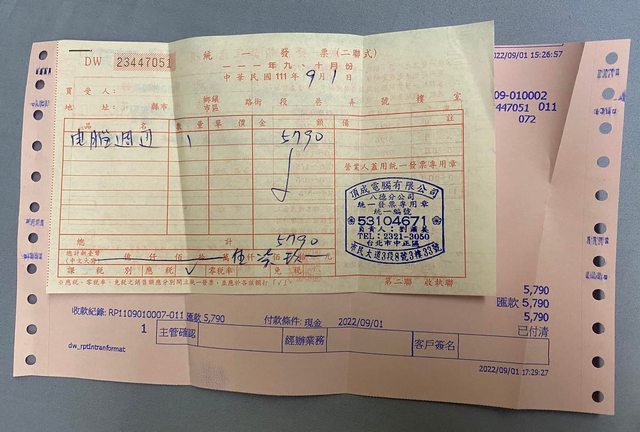 DW 23447051
統一發票(二聯式)
一一一年九、十月份
中華民國111年9月1日
買受人:
地址: 縣市 鄉鎮市區 路街 段 巷 弄 號 樓 室
品名 數量 單價 金額 備註
電腦週邊 1 5790
營業人蓋用統一發票專用章
頂成電腦有限公司
八德分公司
統一發票專用章
統一編號
53104671
TEL: 2321-3050
台北市中正區
市民大道3段8號3樓33號
總計 5790
課稅別 應稅 ✓ 零稅率 免稅
第二聯 收執聯
2022/09/01 15:26:57
09-010002
23447051 011
072
5,790
匯款 5,790
5,790
已付清
收款紀錄: RP1109010007-011 匯款 5,790 付款條件: 現金 2022/09/01
1 主管確認 經辦業務 客戶簽名
dw_rptIntranformat
2022/09/01 17:29:27